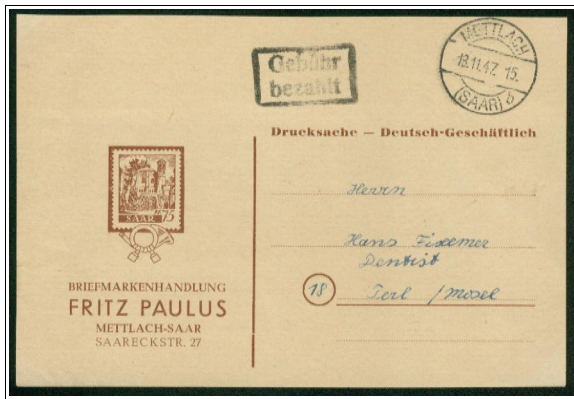 Gebühr
bezahlt
METTLACH
13.11.47. 15.
(SAAR) b
Drucksache — Deutsch-Geschäftlich
SAAR 75
BRIEFMARKENHANDLUNG
FRITZ PAULUS
METTLACH-SAAR
SAARECKSTR. 27
Herrn
Hans Fixemer
Dentist
18 Perl /Mosel